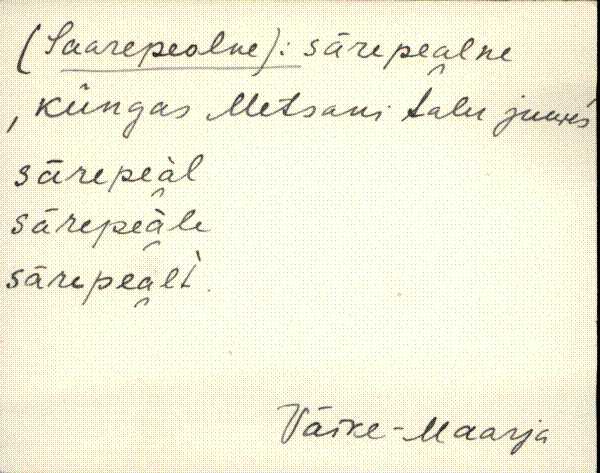 (Saarepealne): särepealne
, küngas Metsani talu juures
särepeàl
särepeäle
särepealt̀
Väike-Maarja